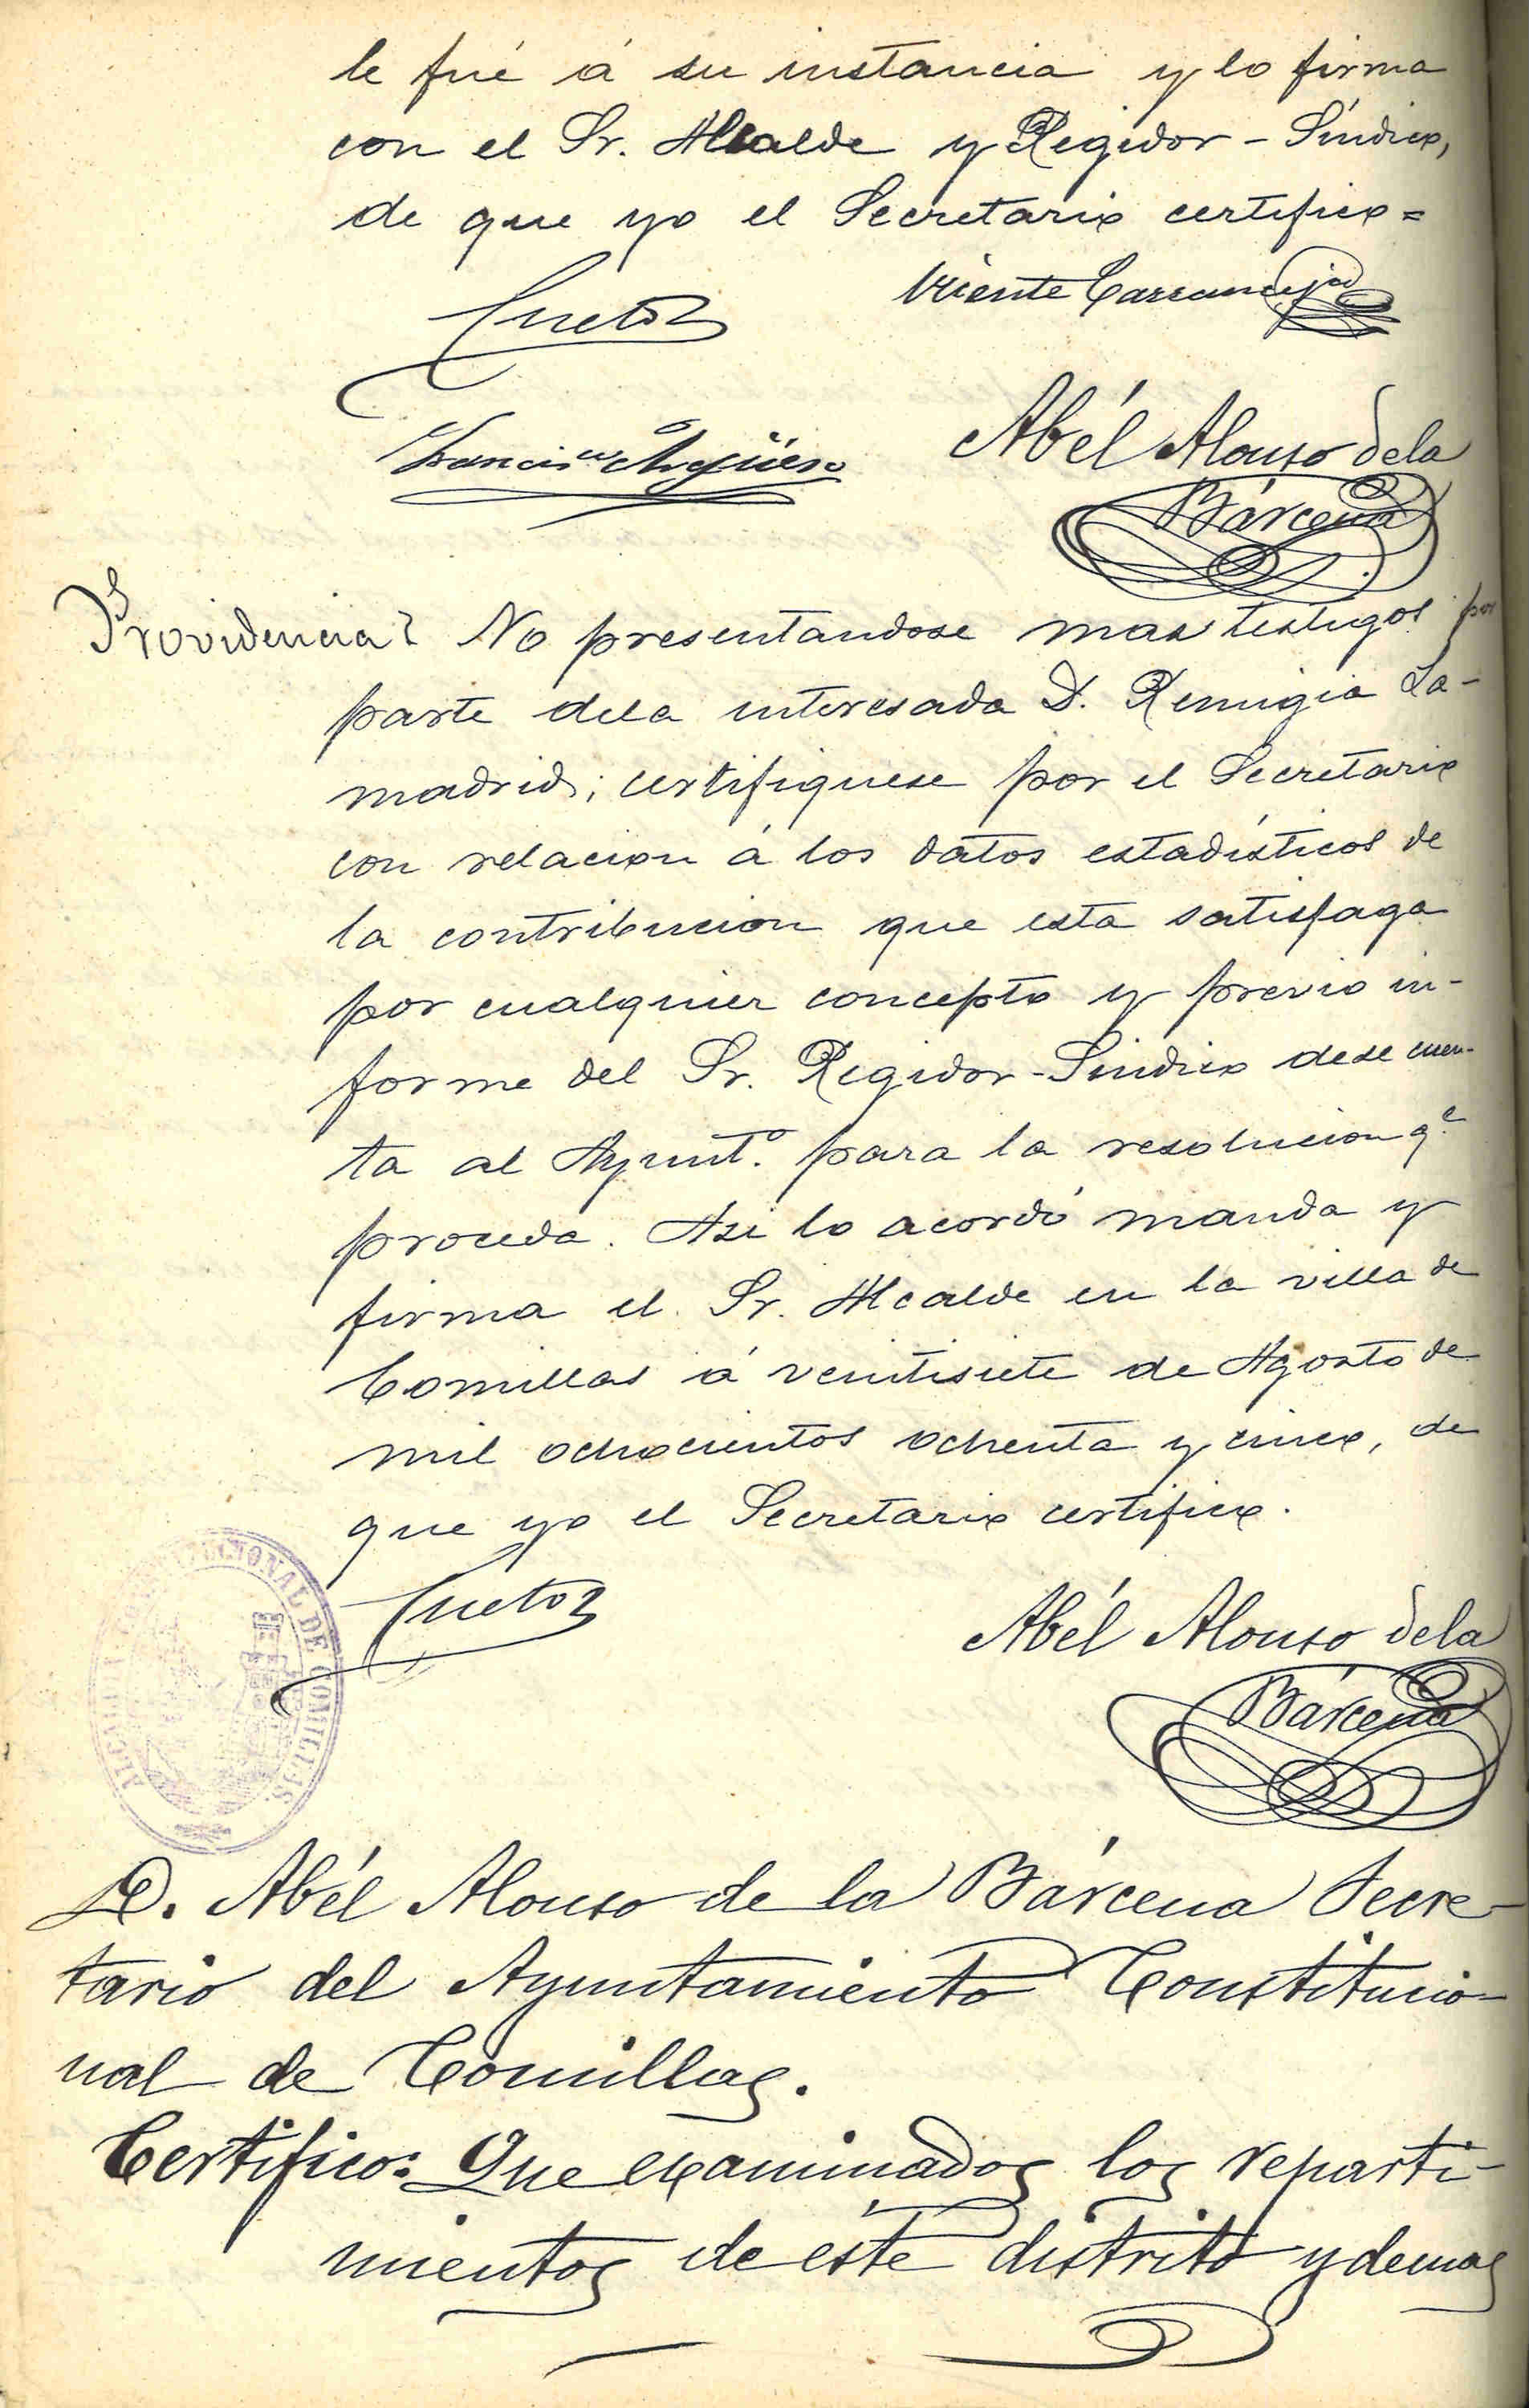 le fué á su instancia y lo firma
con el Sr. Alcalde y Regidor - Síndico,
de que yo el Secretario certifico=
Cueto
Vicente Carranceja
Francisco Argüeso
Abél Alonso dela
Bárcena
Providencia} No presentandose mas testigos por
parte dela interesada D. Remigia La-
madrid; certifiquese por el Secretario
con relacion á los datos estadísticos de
la contribucion que esta satisfaga
por cualquier concepto y previo in-
forme del Sr. Regidor-Sindico dese cuen-
ta al Ayuntº. para la resolucion q.e
proceda. Asi lo acordó manda y
firma el Sr. Alcalde en la villa de
Comillas á veintisiete de Agosto de
mil ochocientos ochenta y cinco, de
que yo el Secretario certifico.
ALCALDIA CONSTITUCIONAL DE COMILLAS
Cueto
Abél Alonso dela
Bárcena
D. Abél Alonso de la Bárcena Secre-
tario del Ayuntamiento Constitucio-
nal de Comillas.
Certifico: Que examinados los reparti-
mientos de este distrito y demas